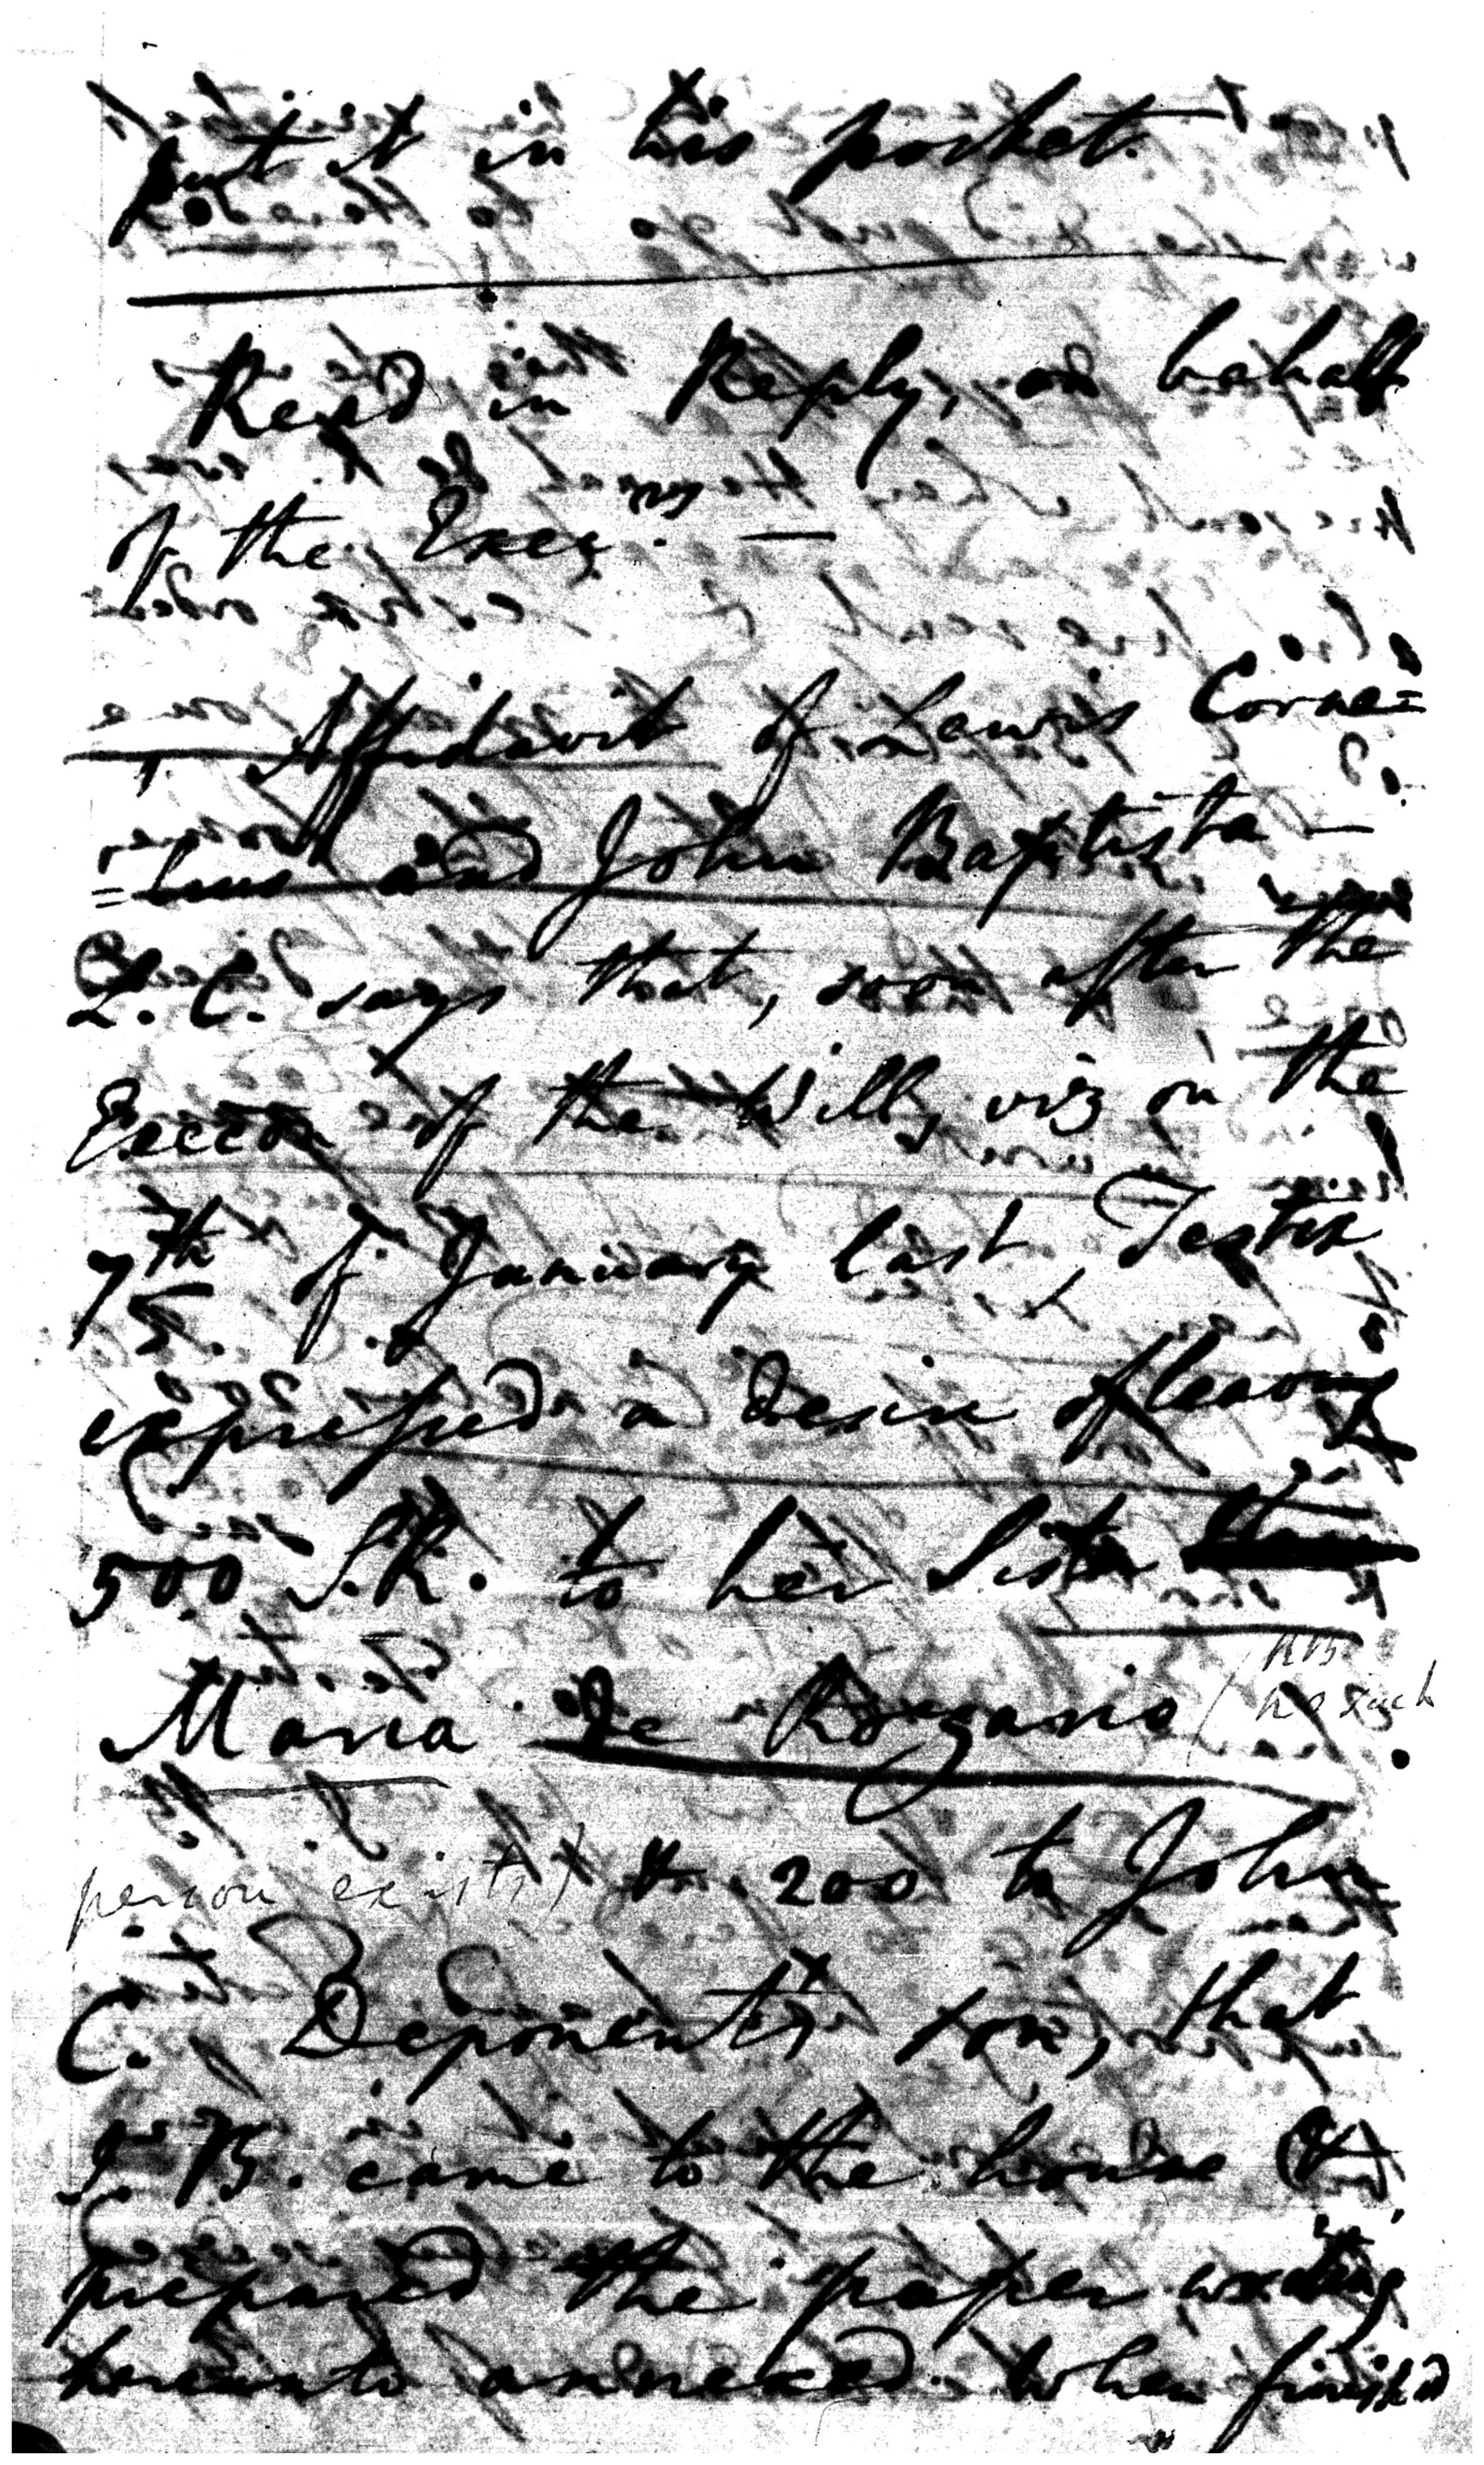 put it in his pocket.
Read in Reply, on behalf
of the Exec.rs —
Affidavit of Lewis Corne=
=lius and John Baptista —
L. C. says that, soon after the
Execon of the Will, viz on the
7th of January last, Testix
expressed a desire of leaving
500 S.R. to her Sister
Maria de Rozario (NB
no such
person exists) & 200 to John
C. Deponent's son, that
J. B. came to the house &
prepared the paper writing
hereunto annexed. When finish'd